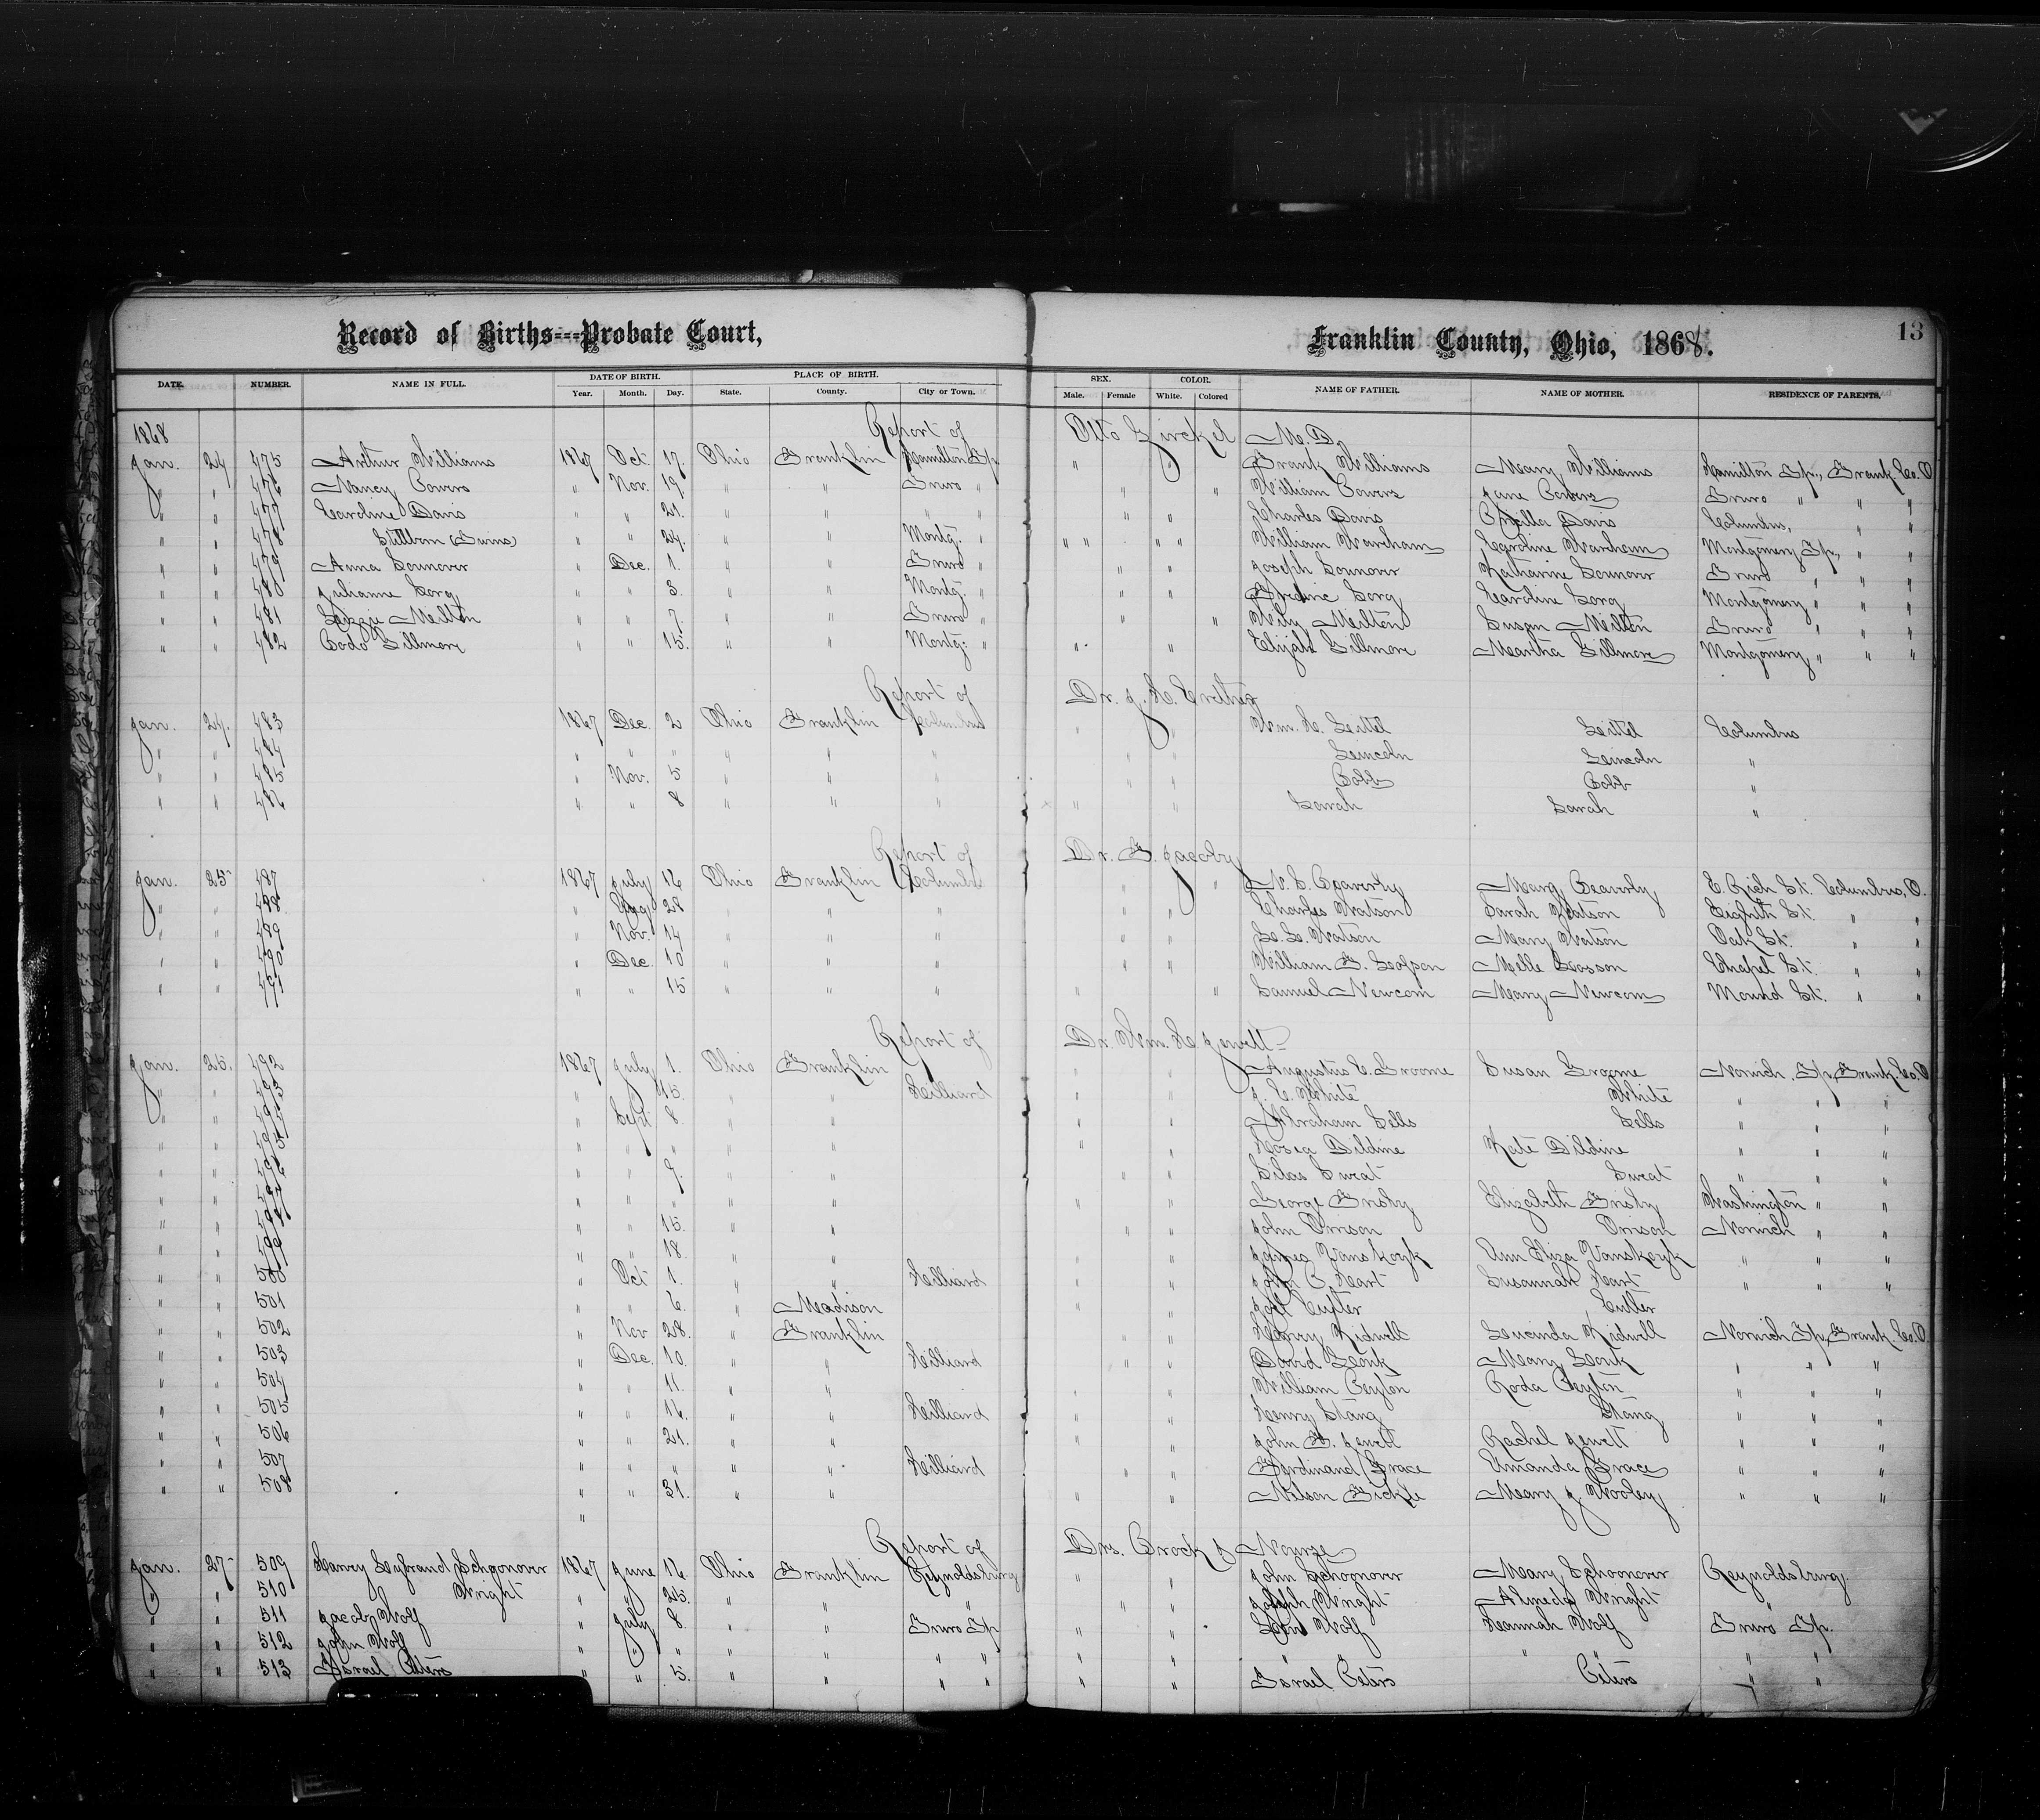 Record of Births---Probate Court, Franklin County, Ohio, 1868. 13
DATE. NUMBER. NAME IN FULL. DATE OF BIRTH. PLACE OF BIRTH. SEX. COLOR. NAME OF FATHER. NAME OF MOTHER. RESIDENCE OF PARENTS.
Year. Month. Day. State. County. City or Town. Male. Female White. Colored
1868 Report of Otto Zirckel M. D.
Jan. 24 475 Arthur Williams 1867 Oct. 17. Ohio Franklin Hamilton Tp " " Frank Williams Mary Williams Hamilton Tp., Frank. Co. O.
" " 476 Nancy Powers " Nov. 19. " " Truro " " " William Powers Jane Powers Truro " " "
" " 477 Caroline Davis " " 21. " " " " " " Charles Davis Davis Columbus, " "
" " 478 Stillborn (Twins) " " 24. " " Montg. " " " " " William Wareham Caroline Wareham Montgomery Tp., " "
" " 479 Anna " Dec. 1. " " Truro " " " Joseph Katharine Truro " " "
" " 480 Julianne Sorg " " 3. " " Montg. " " " Sorg Caroline Sorg Montgomery " " "
" " 481 Lizzie Milton " " 7. " " Truro " " " Wily Milton Susan Milton Truro " " "
" " 482 Gillmore " " 15. " " Montg. " " " Elijah Gillmore Martha Gillmore Montgomery " " "
Report of Dr. J. H.
Jan. 24. 483 1867 Dec. 2 Ohio Franklin Columbus " " Wm. H. Columbus
" " 484 " " " " " " " " Lincoln Lincoln "
" " 485 " Nov. 5 " " " " " Cobb Cobb "
" " 486 " " 8 " " " " " Sarah Sarah "
Report of Dr. F. Jacoby
Jan. 25 487 1867 July 16 Ohio Franklin Columbus " " N. S. Mary E. Rich St. Columbus, O.
" " 488 " Aug. 28 " " " " " Charles Watson Sarah Watson Eighth St. " "
" " 489 " Nov. 14 " " " " " Watson Mary Watson Oak St. " "
" " 490 " Dec. 10 " " " " " William Chapel St. " "
" " 491 " " 15 " " " " " Samuel Newcom Mary Newcom Mound St. " "
Report of Dr. Wm. H. Jewett
Jan. 25. 492 1867 July 1. Ohio Franklin " " Augustus C. Groome Susan Groome Norwich Tp, Frank. Co. O
" " 493 " " 15. " " Hilliard " " J. C. White White " " "
" " 494 " Sept 8. " " " " Abraham Sells Sells " " "
" " 495 " " " " " " " Hosea Dildine Kate Dildine " " "
" " 496 " " 9. " " " " Silas Surat Surat " " "
" " 497 " " " " " " " George Elizabeth Washington " "
" " 498 " " 15. " " " " John Orrison Orrison Norwich " "
" " 499 " " 18. " " " " James Vanskoyk Ann Eliza Vanskoyk " " "
" " 500 " Oct 1. " " Hilliard " " John C. Hart Susannah Hart " " "
" " 501 " " 6. " Madison " " Cutler Cutler
" " 502 " Nov 28. " Franklin " " Henry Kidwell Lucinda Kidwell Norwich Tp, Frank. Co. O.
" " 503 " Dec. 10. " " Hilliard " " David Mary " " "
" " 504 " " 11. " " " " William Peyton Roda Peyton " " "
" " 505 " " 16. " " Hilliard " " Henry Stang Stang " " "
" " 506 " " 21. " " " " John F. Jewett Rachel Jewett " " "
" " 507 " " " " " Hilliard " " Ferdinand Grace Amanda Grace " " "
" " 508 " " 31. " " " " Nelson Mary J. Wooley " " "
"
Report of Drs. Brock & Nourse
Jan. 27 509 Harvy Schoonover 1867 June 16. Ohio Franklin Reynoldsburg " " John Schoonover Mary Schoonover Reynoldsburg.
" " 510 Wright " " 25. " " " " " Joseph Wright Almeda Wright "
" " 511 Jacob Wolf " July 8. " " Truro Tp " " Levi Wolf Hannah Wolf Truro Tp.
" " 512 John Wolf " " " " " " " " " " " " "
" " 513 Israel Peters " " 5. " " " " " " Israel Peters Peters " "